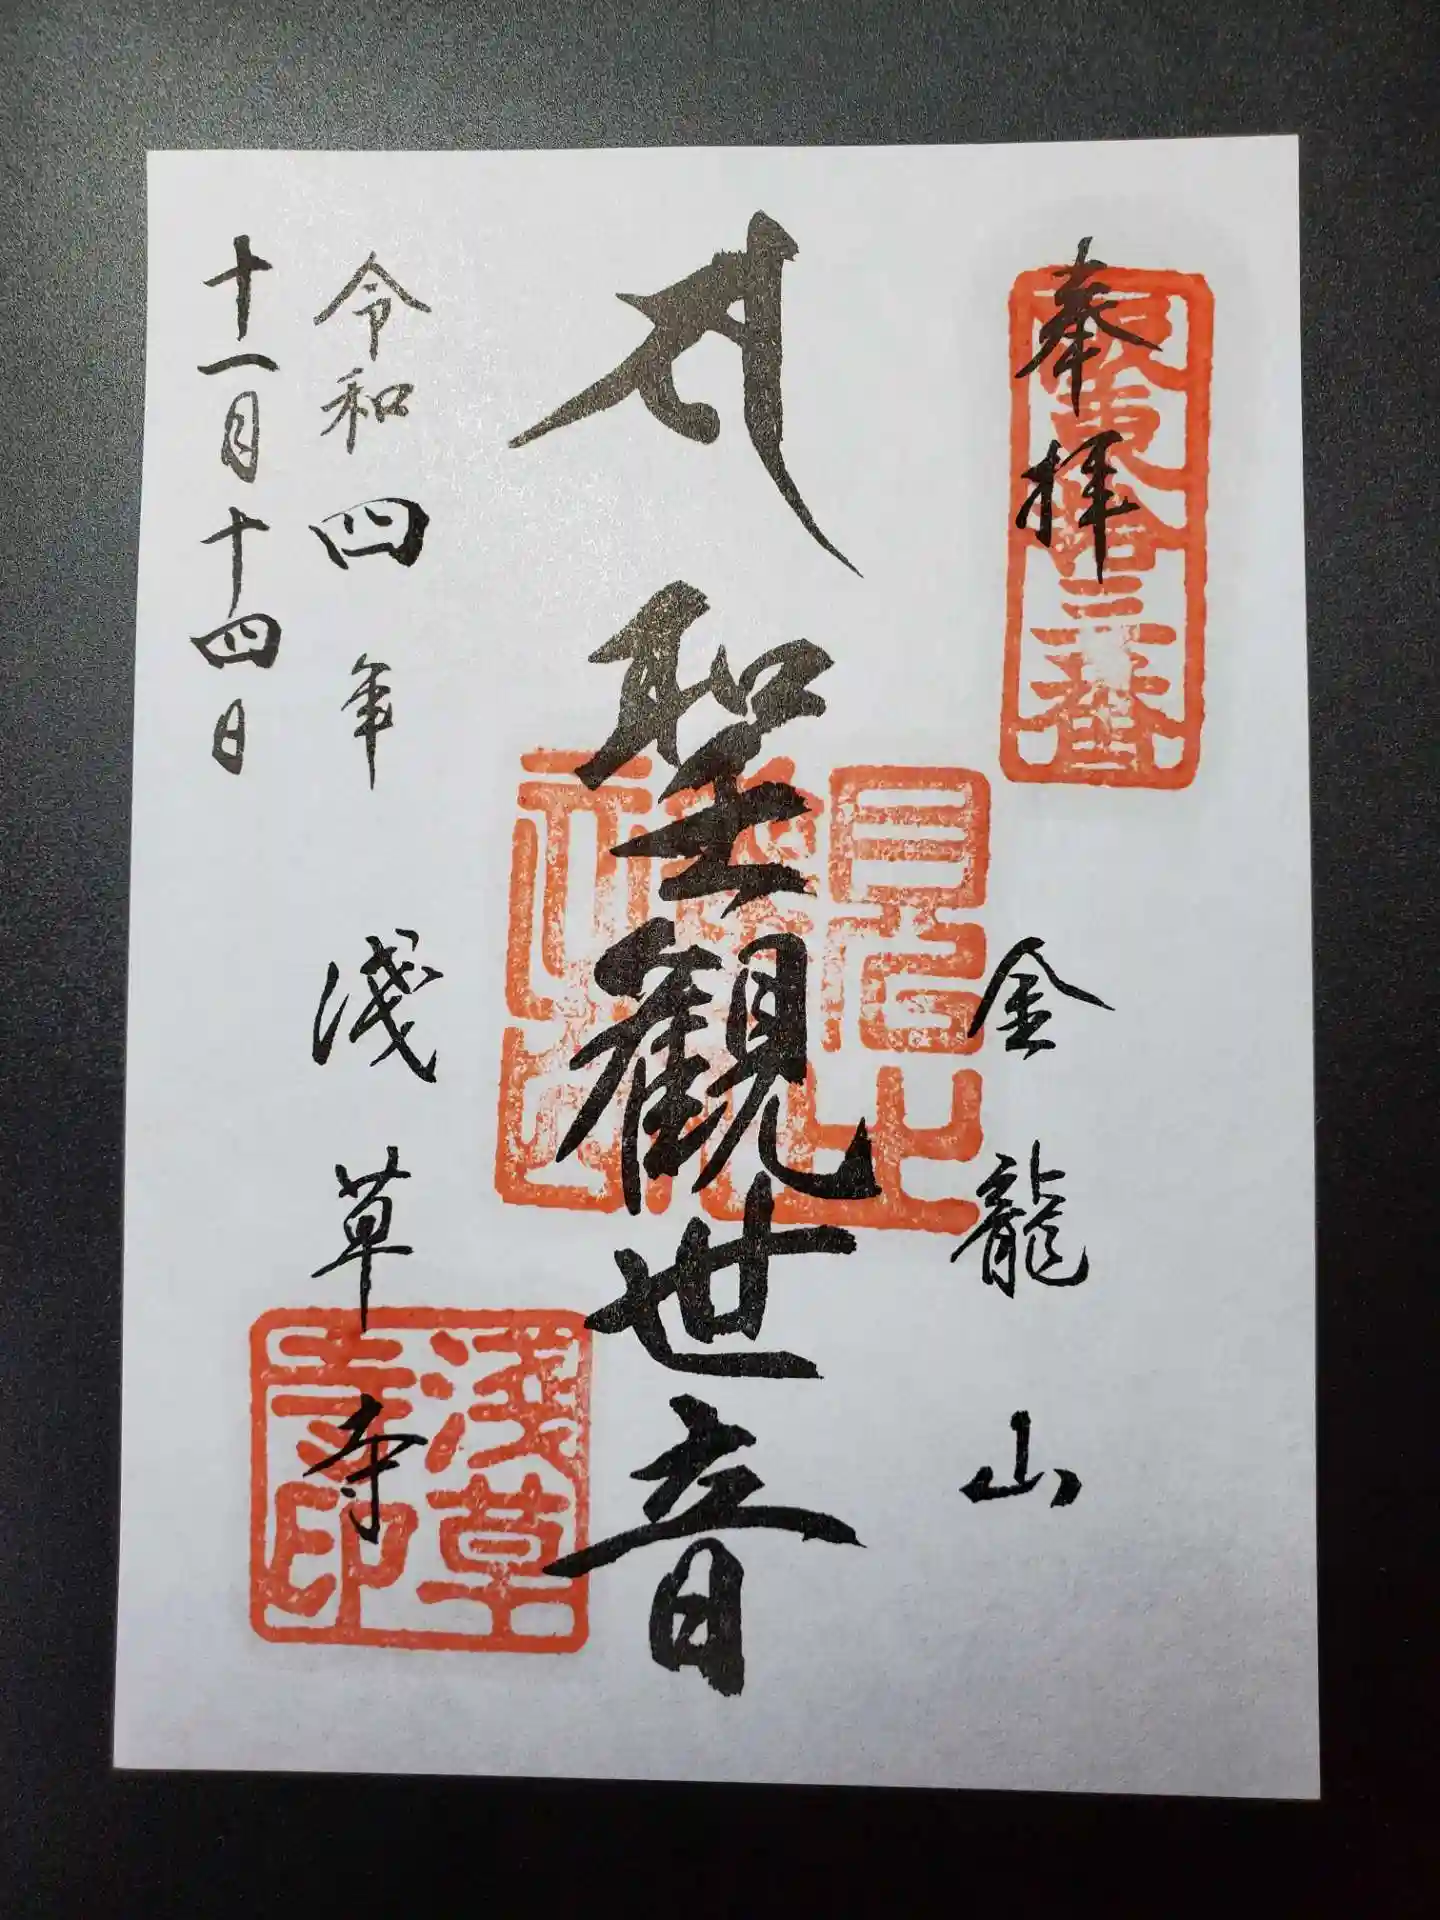 奉拝
坂東拾三番
金龍山
聖観世音
淺草寺
淺草寺印
令和四年
十一月十四日